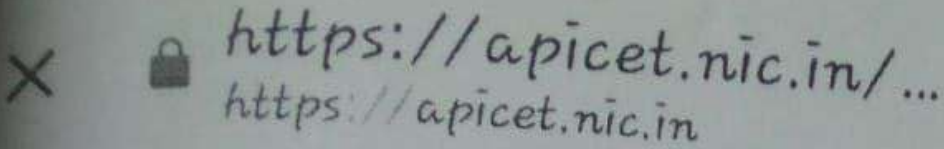 https://apicet.nic.in/...
https://apicet.nic.in